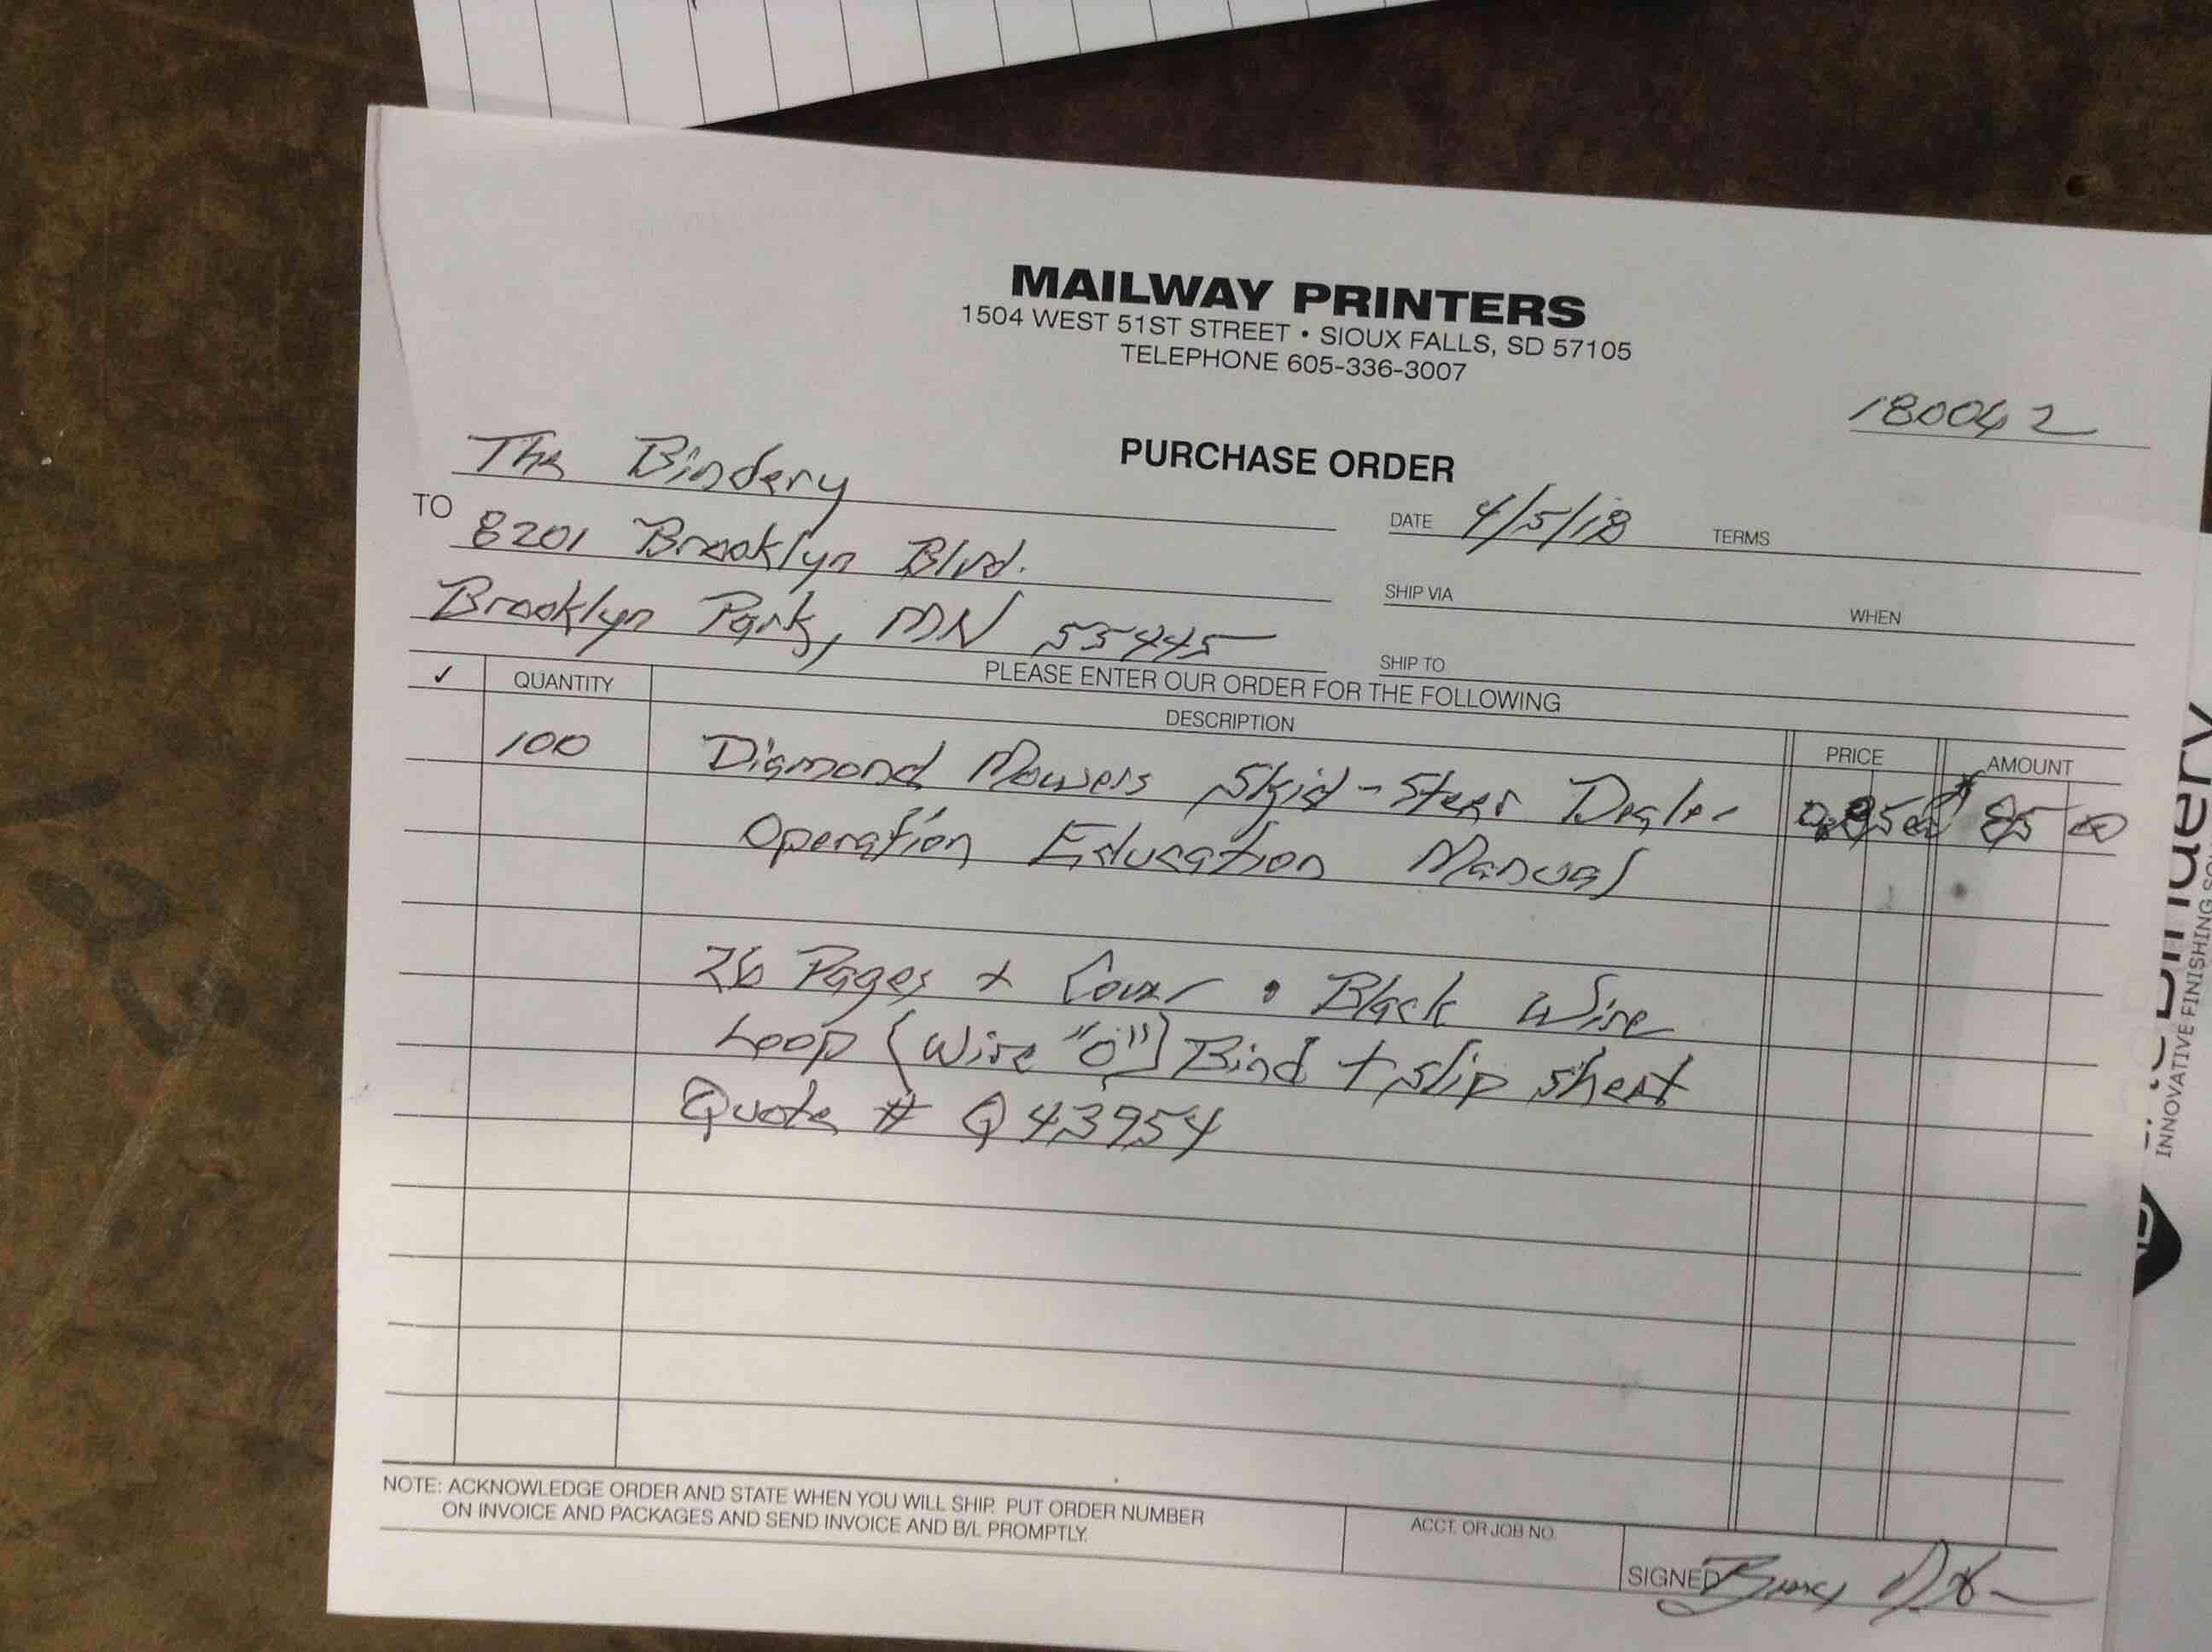 MAILWAY PRINTERS
1504 WEST 51ST STREET • SIOUX FALLS, SD 57105
TELEPHONE 605-336-3007
180042
PURCHASE ORDER
The Bindery
TO 8201 Brooklyn Blvd.
Brooklyn Park, MN 55445
DATE 4/5/18 TERMS
SHIP VIA WHEN
SHIP TO
PLEASE ENTER OUR ORDER FOR THE FOLLOWING
✓ QUANTITY DESCRIPTION PRICE AMOUNT
100 Diamond Mowers Skid-Steer Dealer 85 00
Operation Education Manual
26 Pages + Cover • Black Wire
Loop (Wire "O") Bind + slip sheet
Quote # Q43954
NOTE: ACKNOWLEDGE ORDER AND STATE WHEN YOU WILL SHIP. PUT ORDER NUMBER
ON INVOICE AND PACKAGES AND SEND INVOICE AND B/L PROMPTLY.
ACCT. OR JOB NO.
SIGNED
INNOVATIVE FINISHING